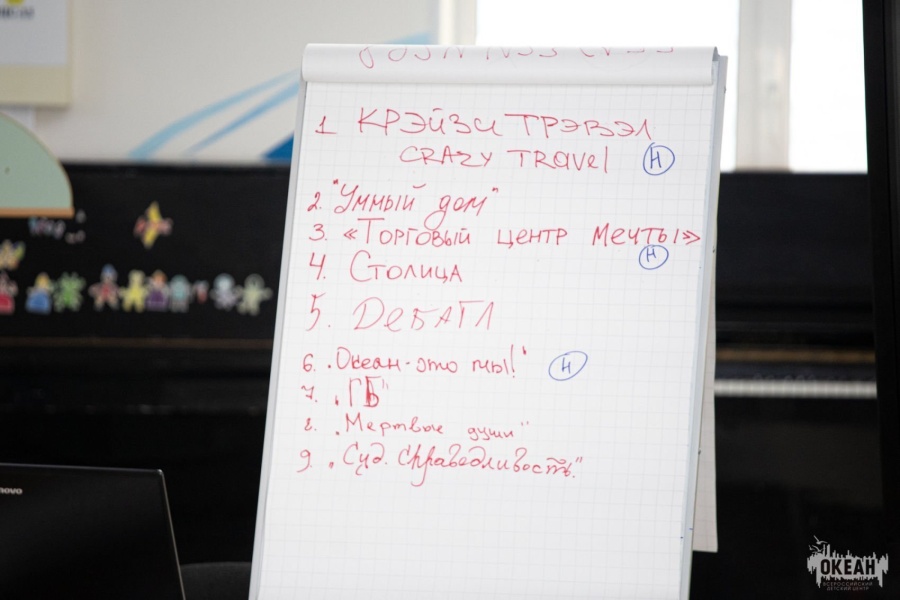 1 КРЭЙЗИ ТРЭВЭЛ
CRAZY TRAVEL Н
2. "Умный дом"
3. «Торговый центр мечты»
Н
4. Столица
5. ДЕБАТЛ
6. „Океан-это мы!" Н
7. „ГБ"
8. „Мертвые души"
9. „Суд. Справедливость."
novo
ОКЕАН
ВСЕРОССИЙСКИЙ
ДЕТСКИЙ ЦЕНТР